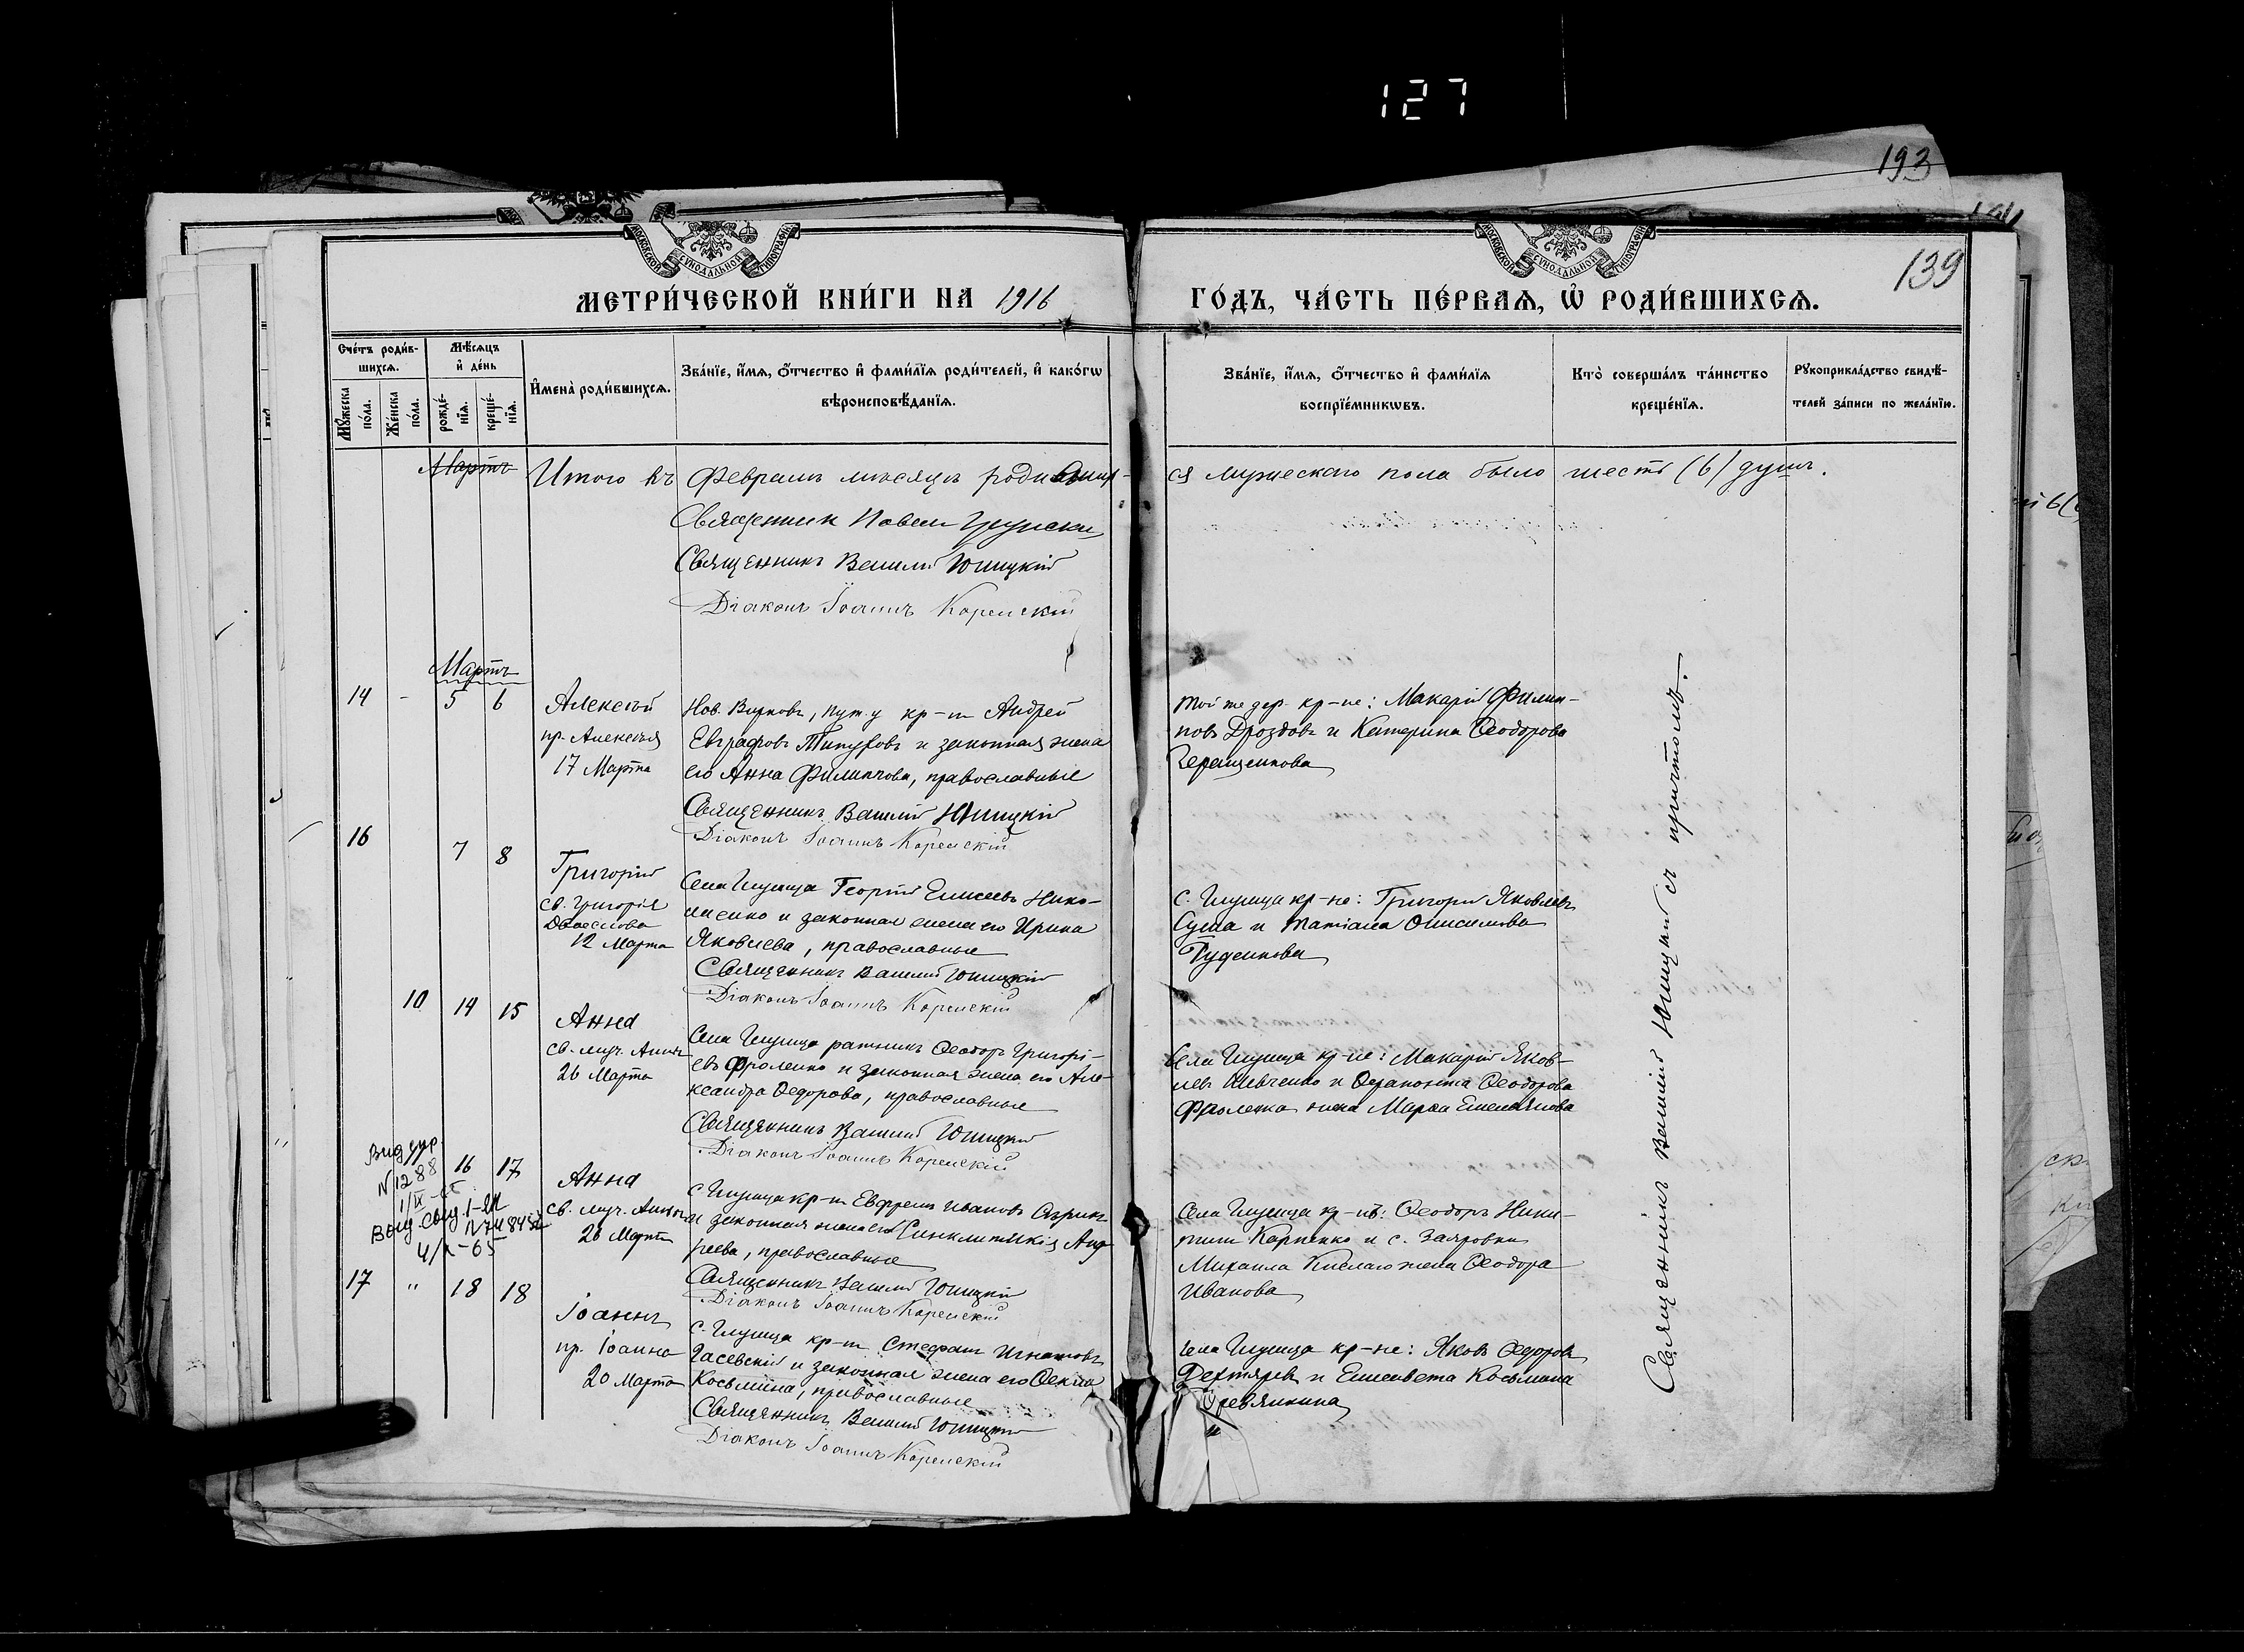 127
193
139
МЕТРИ́ЧЕСКОЙ КНИ́ГИ НА 1916
ГО́ДЪ, ЧА́СТЬ ПЕ́РВАѦ, Ѽ РОДИ́ВШИХСѦ.
МОСКОВСКОЙ СѴНОДАЛЬНОЙ ТИПОГРАФІИ
МОСКОВСКОЙ СѴНОДАЛЬНОЙ ТИПОГРАФІИ
Сче́тъ роди́в-
шихсѧ.
Мꙋ́жеска по́ла.
Же́нска по́ла.
Мѣ́сѧцъ
и҆ де́нь
рожде́-
нїѧ.
креще́-
нїѧ.
И҆мена̀ роди́вшихсѧ.
Зва́нїе, и҆́мѧ, ѻ҆́тчество и҆ фами́лїѧ роди́телей, и҆ како́гѡ
вѣроисповѣ́данїѧ.
Зва́нїе, и҆́мѧ, ѻ҆́тчество и҆ фами́лїѧ
воспрїе́мникѡвъ.
Кто̀ соверша́лъ та́инство
креще́нїѧ.
Рꙋкоприкла́дство свидѣ́-
телей за́писи по жела́нїю.
Мартъ
Итого въ Февралѣ мѣсяцѣ родивших-
ся мужескаго пола было шесть (6) душъ.
Священникъ Павелъ
Священникъ Василій Юницкій
Діаконъ Іоаннъ Корейскій
Мартъ
14 - 5 6
Алексѣй
пр. Алексѣя
17 Марта
Нов. Вирковъ, Пут. у кр-нъ Андрей
Евграфовъ Типуховъ и законная жена
его Анна Филиппова, православные
Священникъ Василій Юницкій
Діаконъ Іоаннъ Корейскій
той же дер. кр-не: Макарій Филип-
повъ Дроздовъ и Катерина Ѳеодорова
Геращенкова
16 7 8
Григорій
св. Григорія
Двоеслова
12 Марта
Села Глушца Георгій Елисеевъ Нико-
лаенко и законная жена его Ирина
Яковлева, православные
Священникъ Василій Юницкій
Діаконъ Іоаннъ Корейскій
с. Глушца кр-не: Григорій Яковлевъ
Суша и Татіана Онисимова
Руденкова
10 14 15
Анна
св. муч. Анны
26 Марта
Села Глушца ратникъ Ѳеодоръ Григорі-
евъ Фроленко и законная жена его Але-
ксандра Ѳедорова, православные
Священникъ Василій Юницкій
Діаконъ Іоаннъ Корейскій
Села Глушца кр-не: Макарій Яков-
левъ Шевченко и Ѳеодорова
Фроленка жена Марѳа Емельянова
N 1288
16 17
Анна
св. муч. Анны
26 Марта
с. Глушца кр-нъ Евфремъ Ивановъ
и законная жена его Синклитикія Анд-
реева, православные
Священникъ Василій Юницкій
Діаконъ Іоаннъ Корейскій
Села Глушца кр-нъ: Ѳеодоръ Ники-
тинъ Карпенко и с. Заяровки
Михаила Кислаго жена Ѳеодора
Иванова
17 " 18 18
Іоаннъ
пр. Іоанна
20 Марта
с. Глушца кр-нъ Стефанъ Игнатовъ
Гасевскій и законная жена его Ѳекла
Косьмина, православные
Священникъ Василій Юницкій
Діаконъ Іоаннъ Корейскій
Села Глушца кр-не: Яковъ Ѳедоровъ
Дехтяревъ и Елисавета Косьмина
Священникъ Василій Юницкій съ причтомъ.